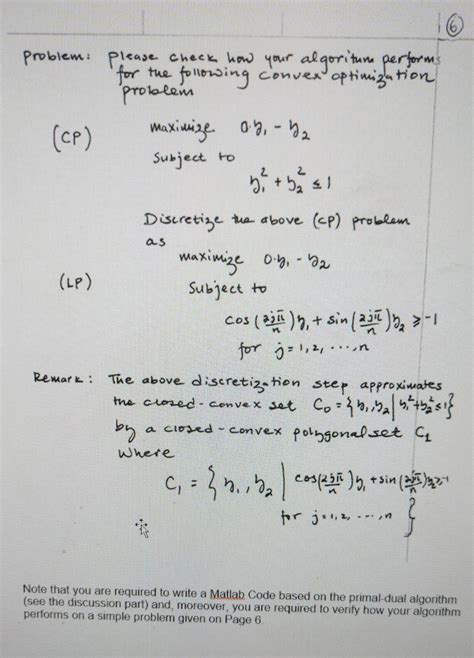 6
Problem: Please check how your algoritum performs
for the following convex optimization
problem
(CP) maximize 0·y₁ - y₂
Subject to
y₁² + y₂² ≤ 1
Discretize the above (CP) problem
as
(LP) maximize 0·y₁ - y₂
Subject to
cos(2jπ/n)y₁ + sin(2jπ/n)y₂ ≥ -1
for j = 1, 2, ..., n
Remark: The above discretization step approximates
the closed-convex set C₀ = {y₁, y₂ | y₁² + y₂² ≤ 1}
by a closed-convex polygonal set C₁
where
C₁ = {y₁, y₂ | cos(2jπ/n)y₁ + sin(2jπ/n)y₂ ≥ -1
for j = 1, 2, ..., n}
Note that you are required to write a Matlab Code based on the primal-dual algorithm
(see the discussion part) and, moreover, you are required to verify how your algorithm
performs on a simple problem given on Page 6.